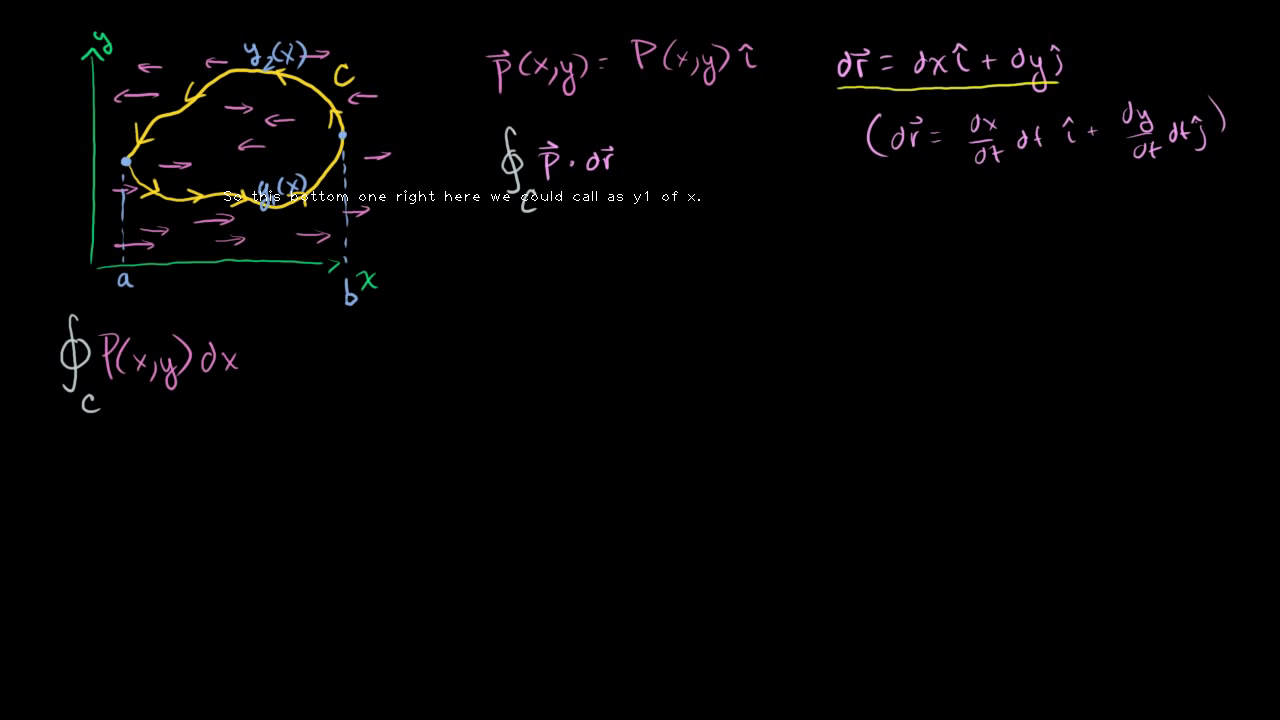 y
y₂(x)
C
y₁(x)
a
b
x
P⃗(x,y) = P(x,y) î
∮_C P⃗ · dr⃗
dr⃗ = dx î + dy ĵ
(dr⃗ = dx/dt dt î + dy/dt dt ĵ)
So this bottom one right here we could call as y1 of x.
∮_C P(x,y) dx